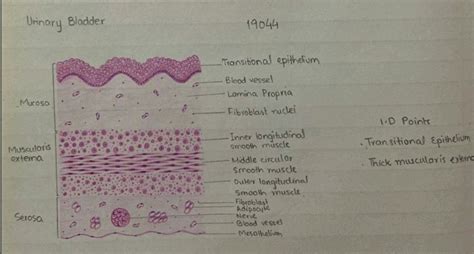 Urinary Bladder
19044
Transitional epithelium
Blood vessel
Lamina Propria
Fibroblast nuclei
Mucosa
Inner longitudinal
smooth muscle
Middle circular
Smooth muscle
Outer longitudinal
Smooth muscle
Muscularis
externa
Fibroblast
Adipocyte
Nerve
Blood vessel
Mesothelium
Serosa
I.D Points
. Transitional Epithelium
. Thick muscularis externa